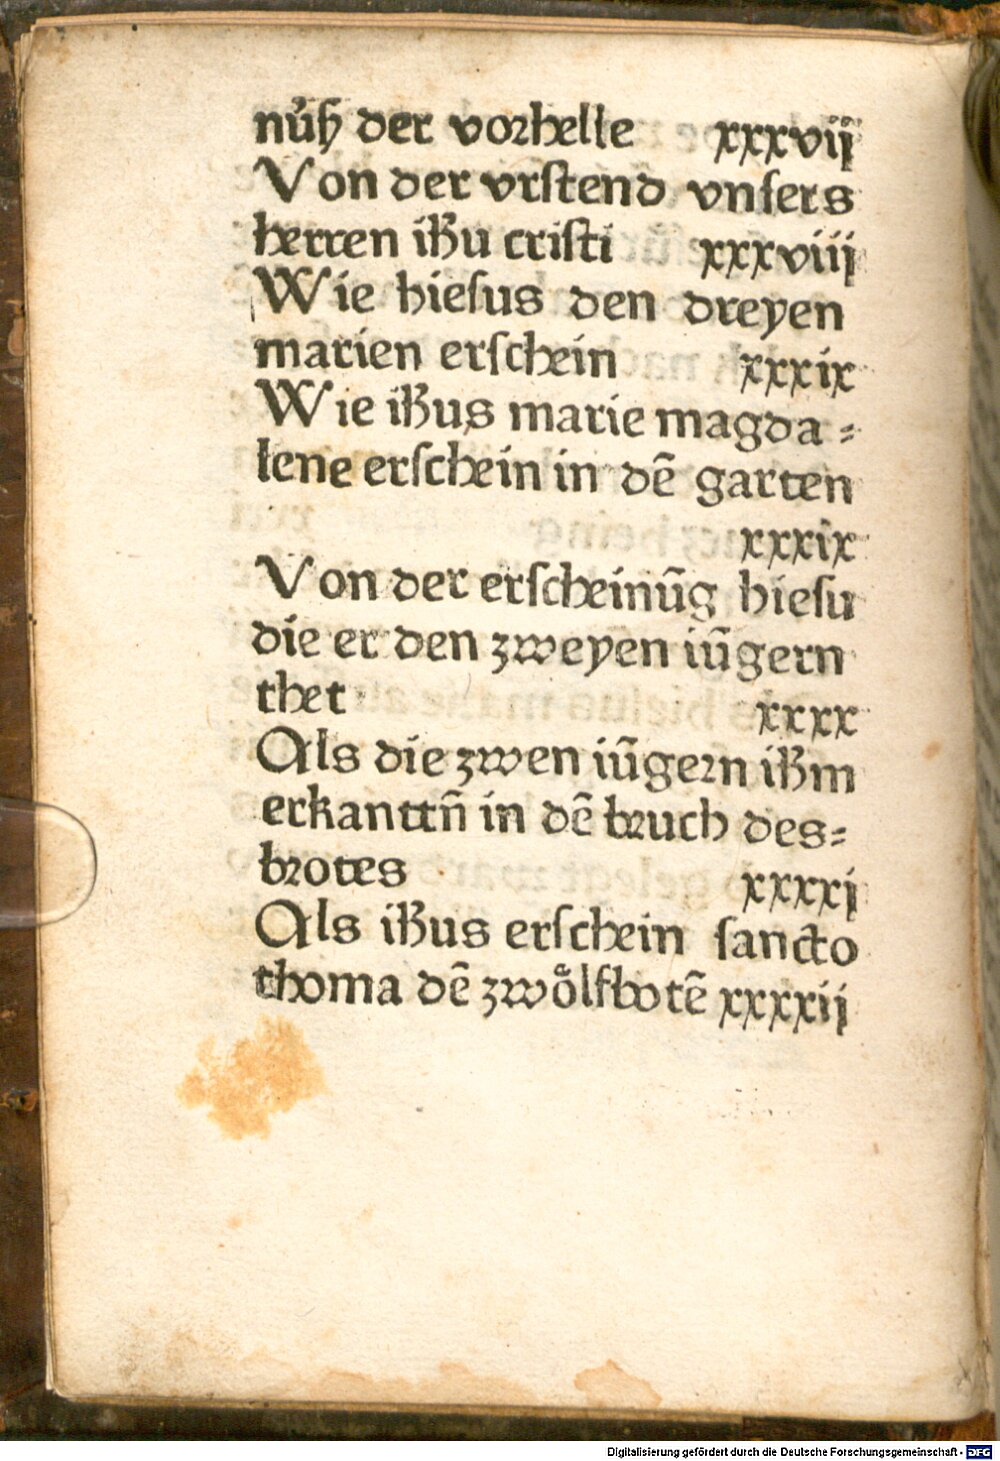 nůſz der vorhelle xxxvij
Von der vrſtend vnſers
herren ih̄u criſti xxxviij
Wie hieſus den dreyen
marien erſchein xxxix
Wie ih̄us marie magda⸗
lene erſchein in dē garten
xxxix
Von der erſcheinūg hieſu
die er den zweyen iūgern
thet xxxx
Als die zwen iūgern ih̄m
erkanttn̄ in dē bruch des⸗
brotes xxxxj
Als ih̄us erſchein ſancto
thoma dē zwoͤlfbotē xxxxij
Digitalisierung gefördert durch die Deutsche Forschungsgemeinschaft - DFG